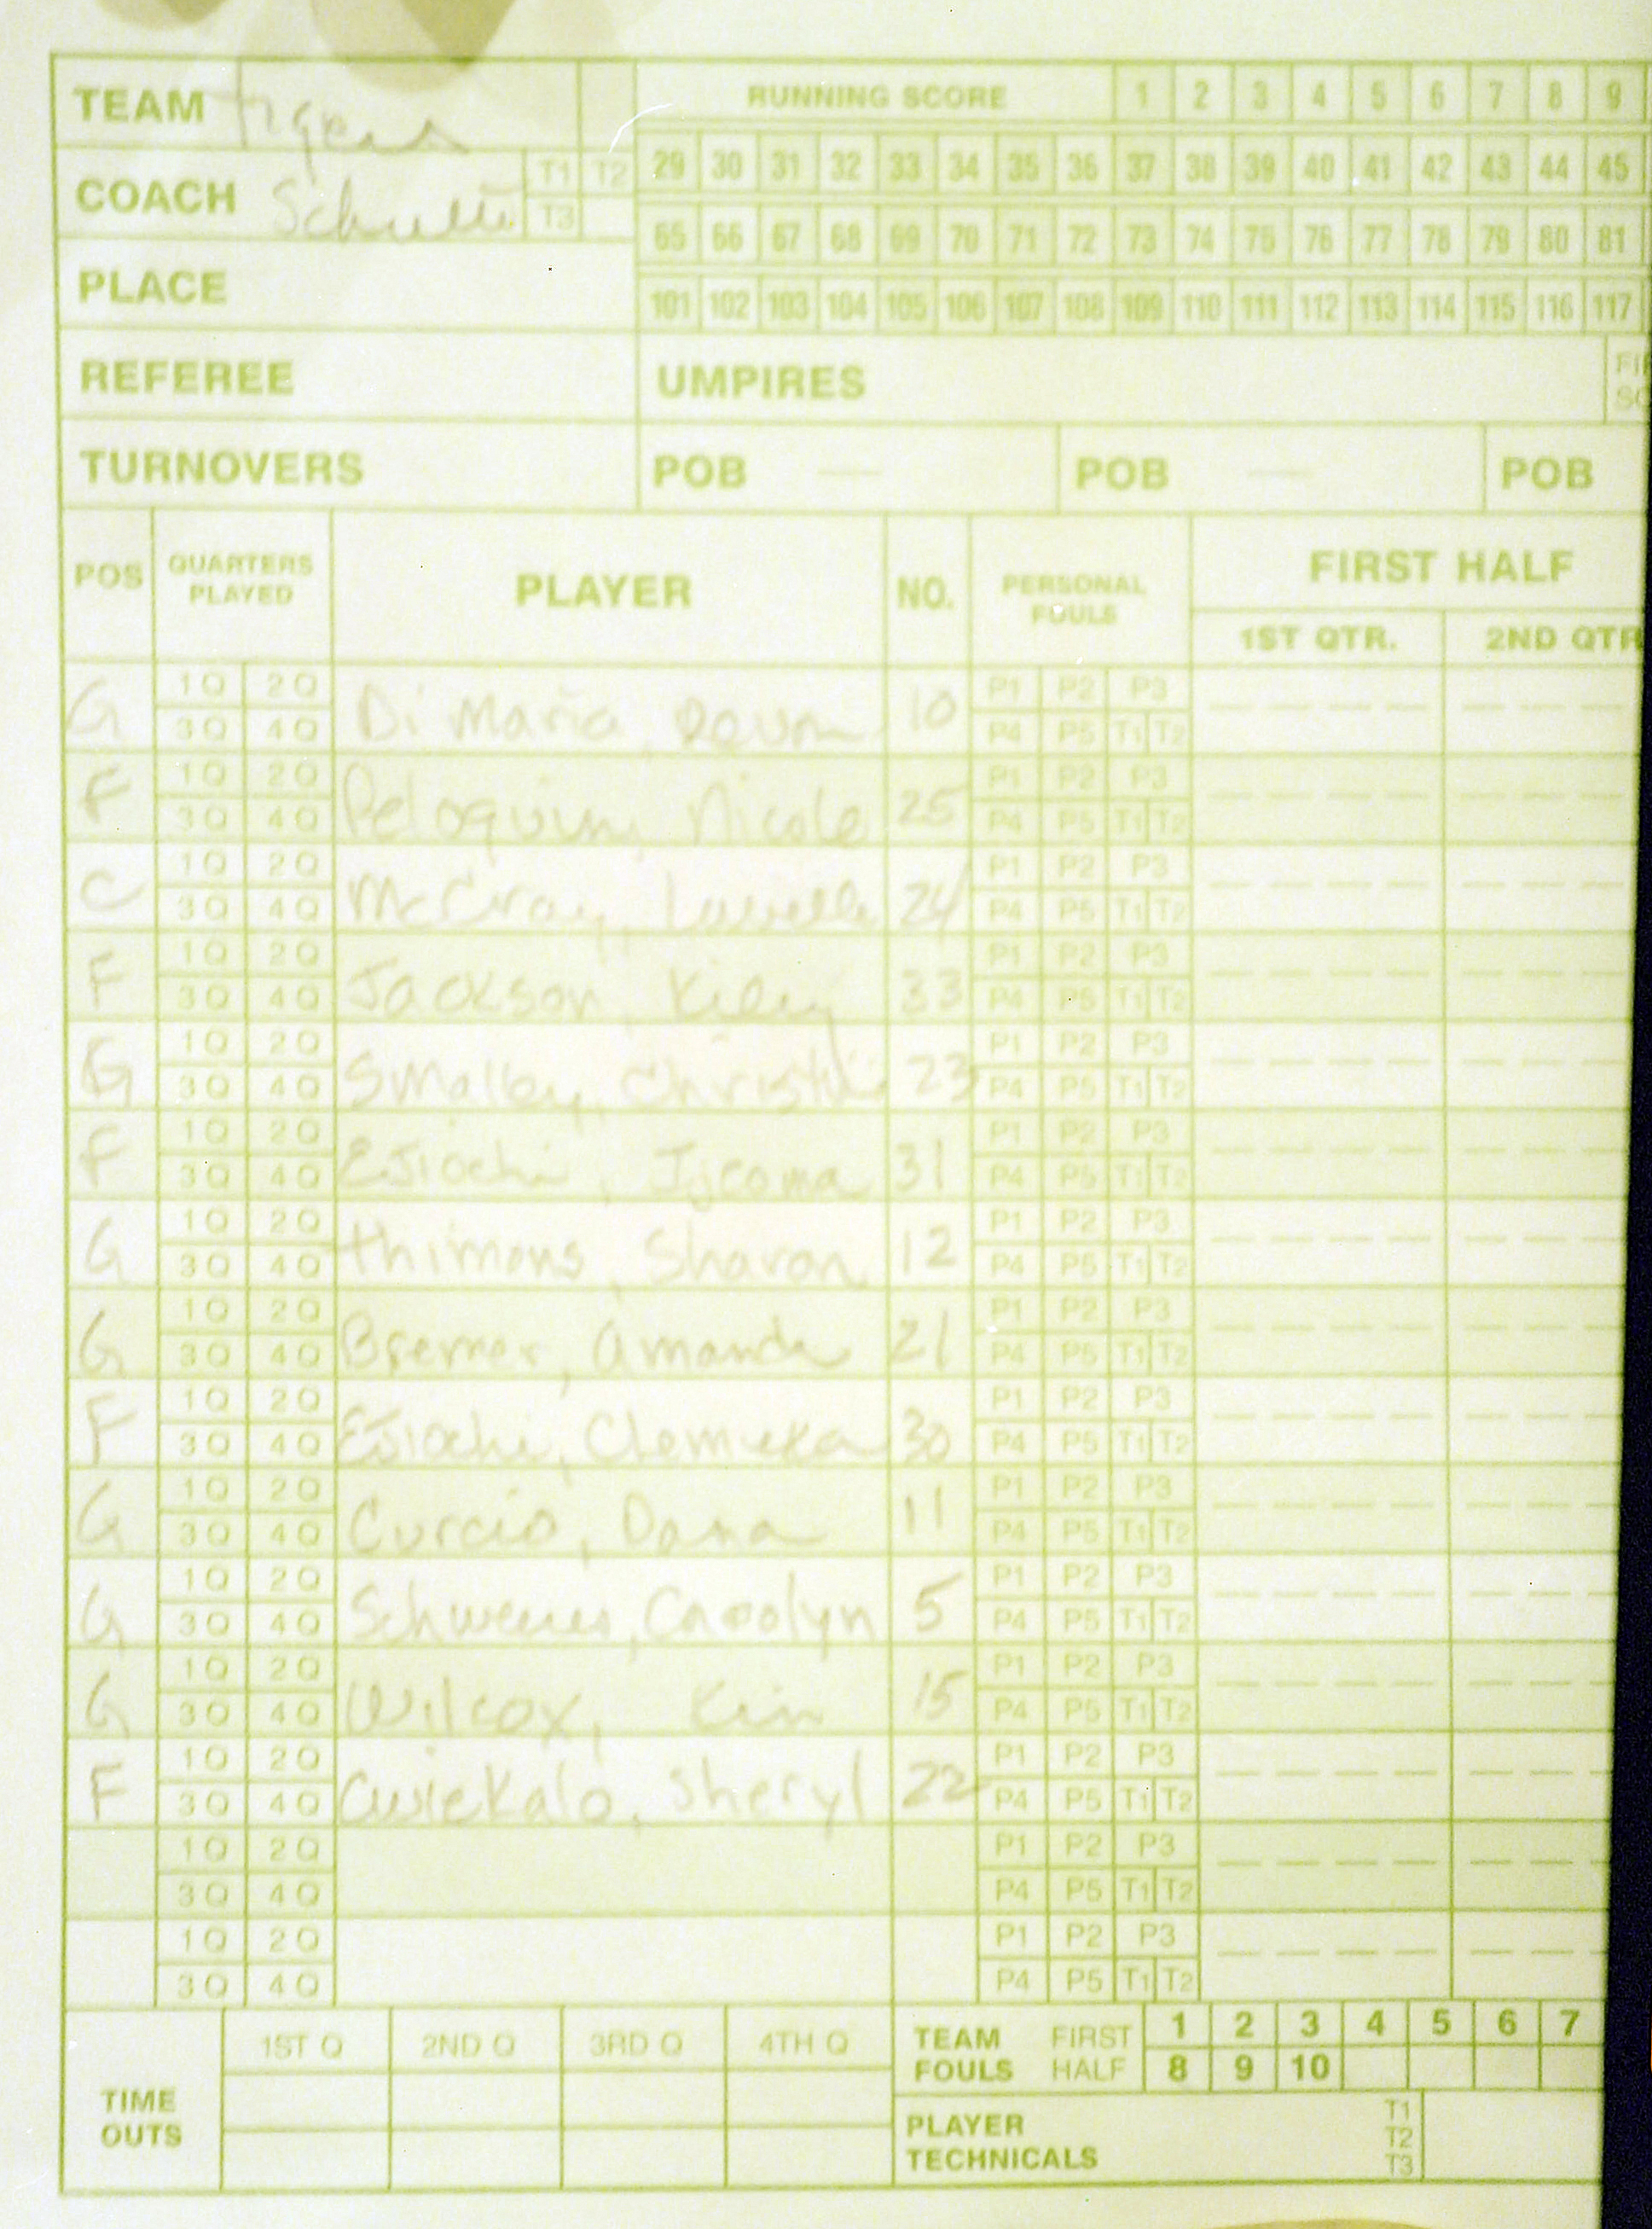 TEAM Tigers
RUNNING SCORE 1 2 3 4 5 6 7 8 9
COACH T1 T2
T3
29 30 31 32 33 34 35 36 37 38 39 40 41 42 43 44 45
65 66 67 68 69 70 71 72 73 74 75 76 77 78 79 80 81
PLACE
101 102 103 104 105 106 107 108 109 110 111 112 113 114 115 116 117
REFEREE UMPIRES
TURNOVERS POB — POB — POB
POS QUARTERS PLAYED PLAYER NO. PERSONAL FOULS FIRST HALF
1ST QTR. 2ND QTR
G 1Q 2Q Di Maria, 10 P1 P2 P3
3Q 4Q P4 P5 T1 T2
F 1Q 2Q Peloquin, Nicole 25 P1 P2 P3
3Q 4Q P4 P5 T1 T2
C 1Q 2Q McCray, 24 P1 P2 P3
3Q 4Q P4 P5 T1 T2
F 1Q 2Q Jackson, Kiley 33 P1 P2 P3
3Q 4Q P4 P5 T1 T2
G 1Q 2Q Smalley, 23 P1 P2 P3
3Q 4Q P4 P5 T1 T2
F 1Q 2Q Ejiochi, Ijeoma 31 P1 P2 P3
3Q 4Q P4 P5 T1 T2
G 1Q 2Q Thimons, Sharon 12 P1 P2 P3
3Q 4Q P4 P5 T1 T2
G 1Q 2Q Bremer, Amanda 21 P1 P2 P3
3Q 4Q P4 P5 T1 T2
F 1Q 2Q Ejiochi, Chemuka 30 P1 P2 P3
3Q 4Q P4 P5 T1 T2
G 1Q 2Q Curcio, Dana 11 P1 P2 P3
3Q 4Q P4 P5 T1 T2
G 1Q 2Q Carolyn 5 P1 P2 P3
3Q 4Q P4 P5 T1 T2
G 1Q 2Q Wilcox, Kim 15 P1 P2 P3
3Q 4Q P4 P5 T1 T2
F 1Q 2Q Cwiekalo, Sheryl 22 P1 P2 P3
3Q 4Q P4 P5 T1 T2
1Q 2Q P1 P2 P3
3Q 4Q P4 P5 T1 T2
1Q 2Q P1 P2 P3
3Q 4Q P4 P5 T1 T2
TIME OUTS 1ST Q 2ND Q 3RD Q 4TH Q
TEAM FOULS FIRST HALF 1 2 3 4 5 6 7
8 9 10
PLAYER TECHNICALS T1
T2
T3